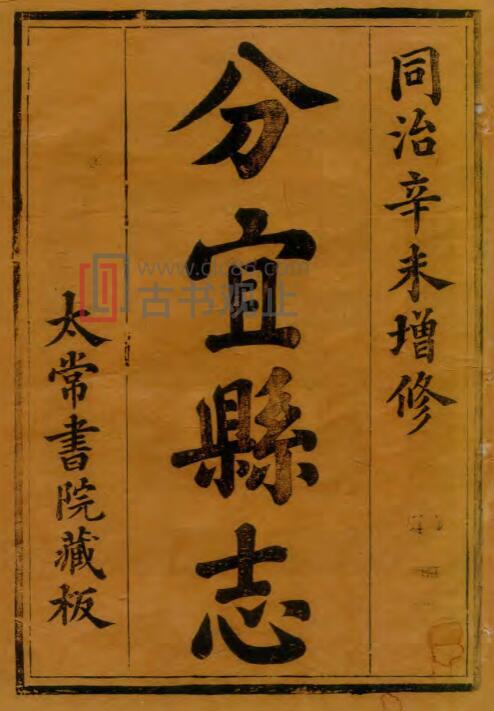 同治辛未增修
分宜縣志
太常書院藏板
古书欢止